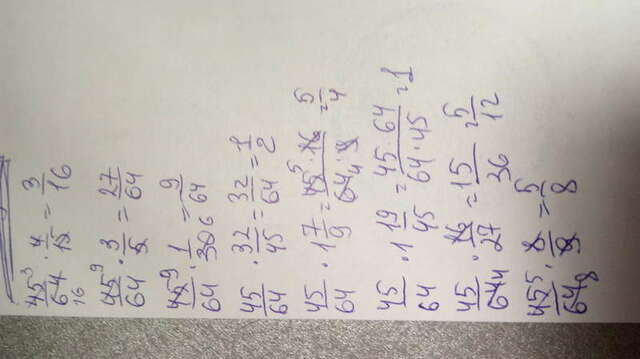 45/64 · 4/15 = 3/16
45/64 · 3/5 = 27/64
45/64 · 1/30 = 9/64
45/64 · 32/45 = 32/64 = 1/2
45/64 · 1 7/9 = 45 · 16/64 · 9 = 5/4
45/64 · 1 19/45 = 45 · 64/64 · 45 = 1
45/64 · 16/27 = 15/36 = 5/12
45/64 · 8/9 = 5/8